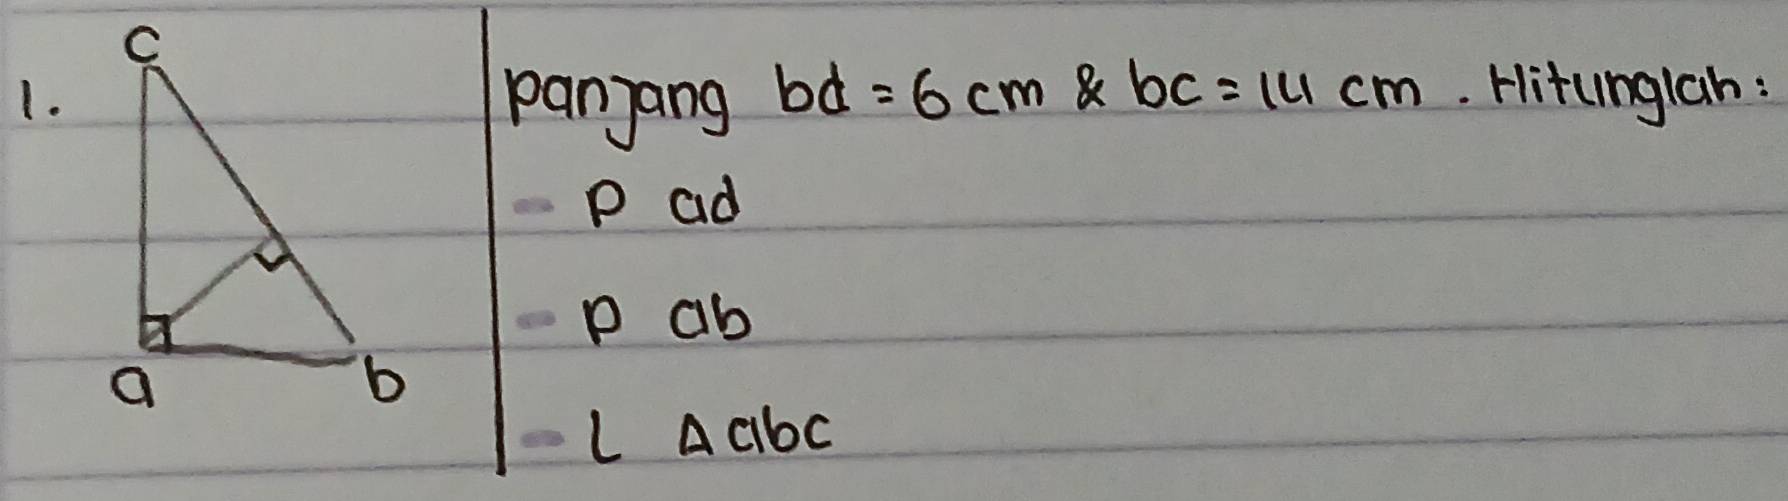 1.
c
a
b
panjang bd = 6 cm & bc = 14 cm. Hitunglah:
- P ad
- P ab
- L Δ abc